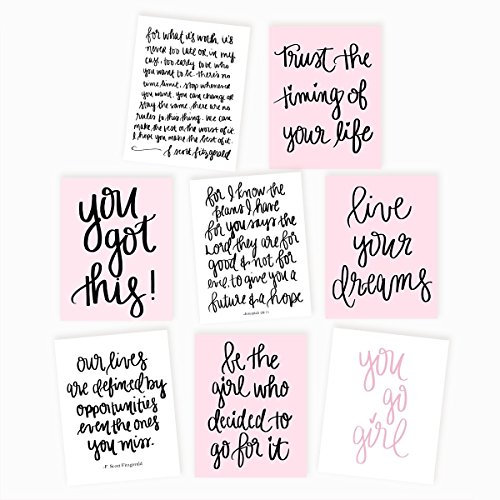 for what it's worth, it's
never too late or, in my
case, too early to be who
you want to be. there's no
time limit, stop whenever
you want. you can change or
stay the same, there are no
rules to this thing. we can
make the best or the worst of it.
I hope you make the best of it.
f. scott fitzgerald
Trust the
timing of
your life
you
got
this!
for I know the
plans I have
for you says the
Lord they are for
good & not for
evil to give you a
future & a hope
-Jeremiah 29:11
live
your
dreams
our lives
are defined by
opportunities
even the ones
you miss.
-F. Scott Fitzgerald
be the
girl who
decided to
go for it
you
go
girl